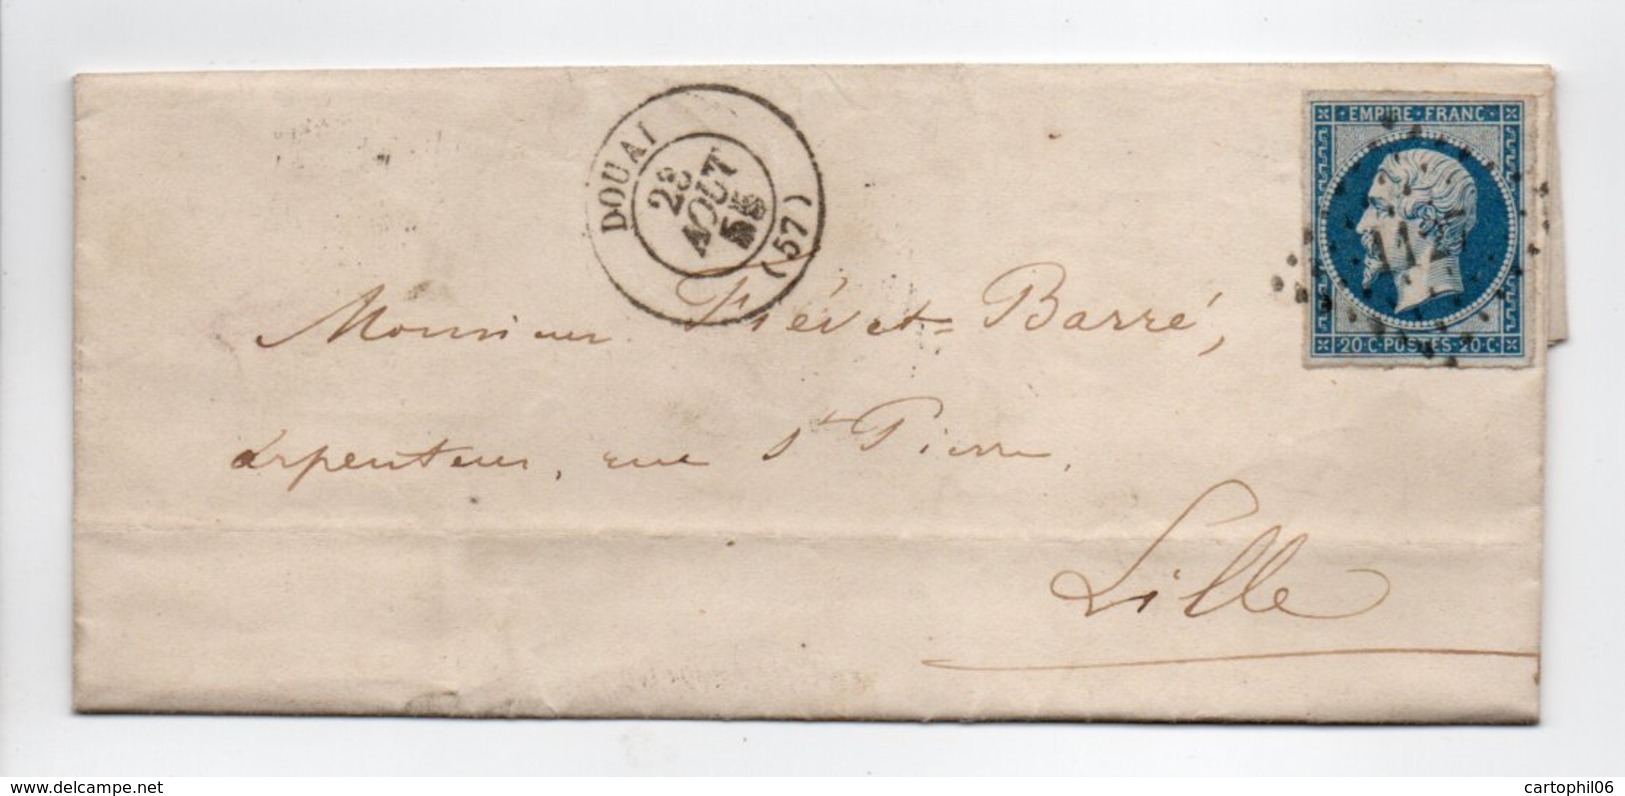 DOUAI
28
AOUT
(57)
EMPIRE·FRANC·
20 C·POSTES·20 C·
Monsieur Fiévet=Barré,
arpenteur, rue St Pierre,
Lille
delcampe.net
cartophil06